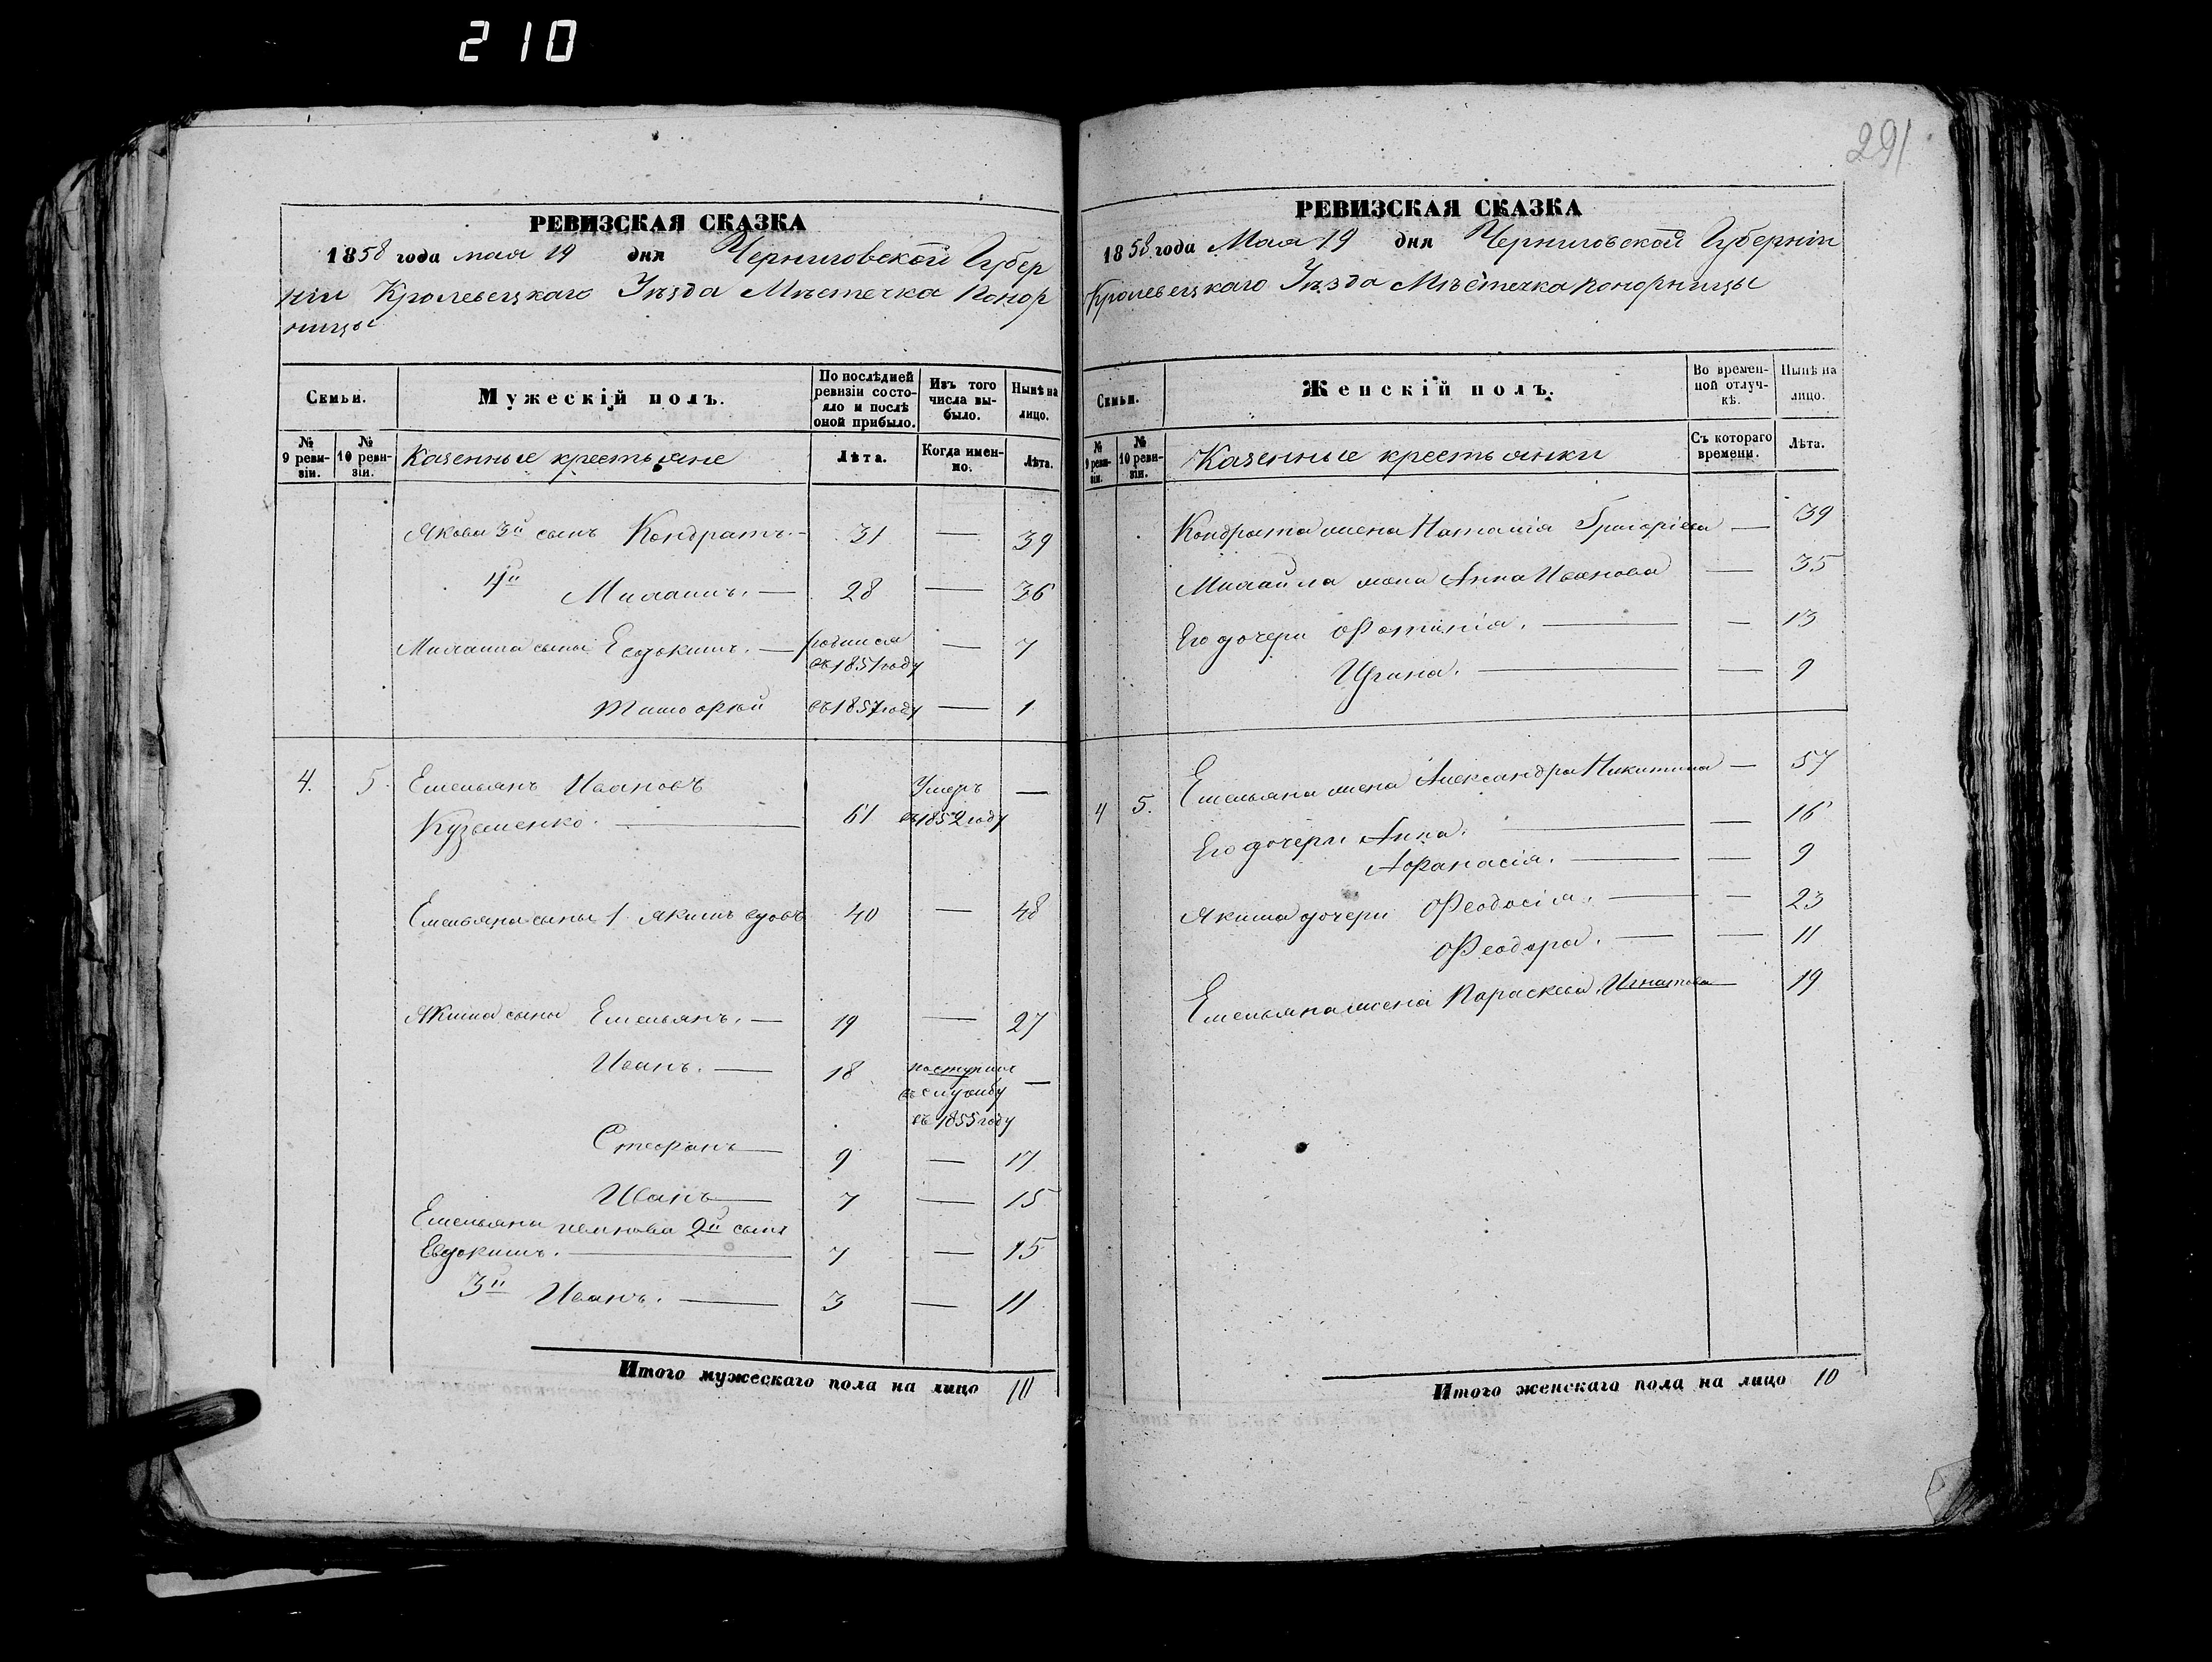 210
РЕВИЗСКАЯ СКАЗКА
1858 года мая 19 дня Черниговской Губер
ніи Кролевецкаго Уѣзда Мѣстечка Понор
ницы
Семьи.
Мужескій полъ.
По послѣдней ревизіи состояло и послѣ оной прибыло.
Изъ того числа выбыло.
Нынѣ на лицо.
№ 9 ревизіи.
№ 10 ревизіи.
Казенные крестьяне
Лѣта.
Когда именно.
Лѣта.
Якова 3й сынъ Кондратъ. — 31 — 39
4й Михаилъ. — 28 — 36
Михаила сыны Евдокимъ. — родился въ 1851 году — 7
Тимофѣй въ 1857 году — 1
4. 5. Емельянъ Ивановъ
Кузьменко. — 61 Умеръ въ 1852 году —
Емельяна сыны 1 Якимъ вдовъ 40 — 48
Якима сыны Емельянъ. — 19 — 27
Иванъ. — 18 поступил въ службу въ 1855 году —
Стефанъ — 9 — 17
Иванъ — 7 — 15
Емельяна Иванова 2й сынъ
Евдокимъ. — 7 — 15
3й Иванъ. — 3 — 11
Итого мужескаго пола на лицо 10
291
РЕВИЗСКАЯ СКАЗКА
1858 года Мая 19 дня Черниговской Губерніи
Кролевецкаго Уѣзда Мѣстечка Понорницы
Семьи.
Женскій полъ.
Во временной отлучкѣ.
Нынѣ на лицо.
№ 9 ревизіи.
№ 10 ревизіи.
Казенные крестьянки
Съ котораго времени.
Лѣта.
Кондрата жена Наталія Григоріева — 39
Михаила жена Анна Иванова — 35
Его дочери Фотинія. — — 13
Ирина. — — 9
4 5. Емельяна жена Александра Никитина — 57
Его дочери Анна. — — 16
Афанасія. — — 9
Якима дочери Феодосія. — — 23
Феодора. — — 11
Емельяна жена Параскева Игнатова — 19
Итого женскаго пола на лицо 10